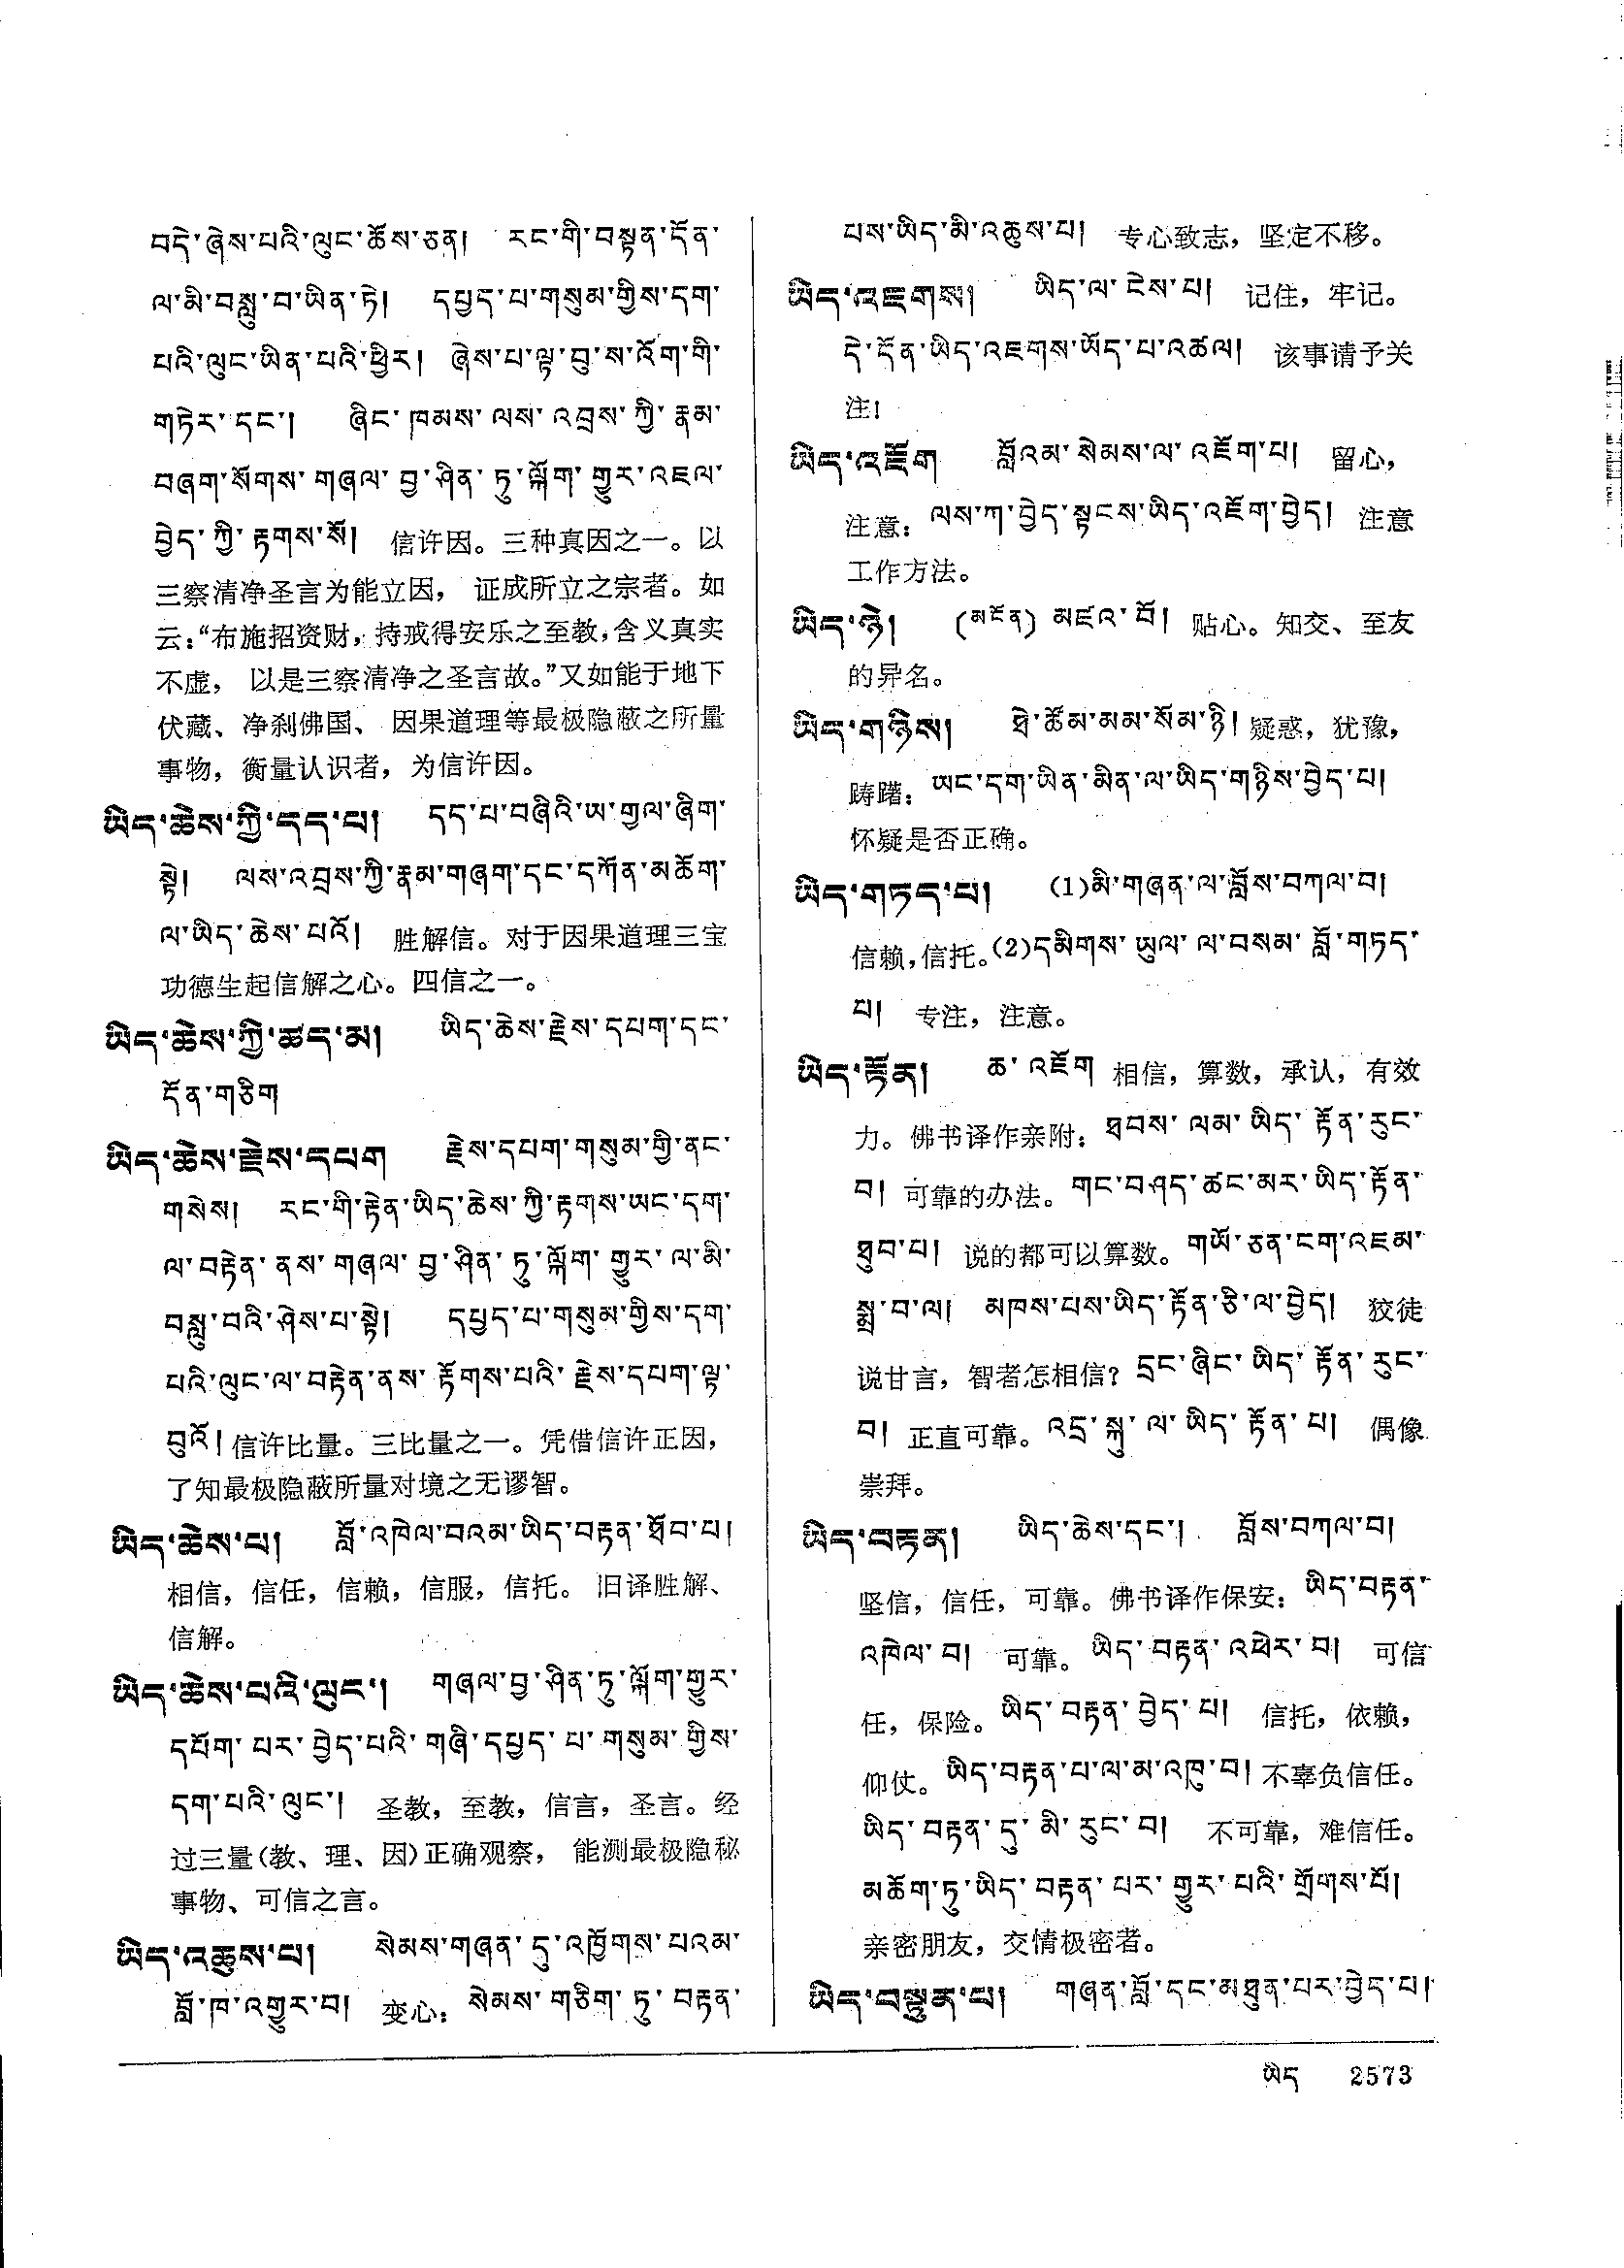 བདེ་ཞེས་པའི་ལུང་ཆོས་ཅན། རང་གི་བསྟན་དོན་
ལ་མི་བསླུ་བ་ཡིན་ཏེ། དཔྱད་པ་གསུམ་གྱིས་དག་
པའི་ལུང་ཡིན་པའི་ཕྱིར། ཞེས་པ་ལྟ་བུ་ས་འོག་གི་
གཏེར་དང་། ཞིང་ཁམས་ལས་འབྲས་ཀྱི་རྣམ་
བཞག་སོགས་གཞལ་བྱ་ཤིན་ཏུ་ལྐོག་གྱུར་འཇལ་
བྱེད་ཀྱི་རྟགས་སོ། 信许因。三种真因之一。以
三察清净圣言为能立因， 证成所立之宗者。如
云：“布施招资财，持戒得安乐之至教，含义真实
不虚， 以是三察清净之圣言故。”又如能于地下
伏藏、净刹佛国、 因果道理等最极隐蔽之所量
事物，衡量认识者，为信许因。
ཡིད་ཆེས་ཀྱི་དད་པ། དད་པ་བཞིའི་ཨ་གྱལ་ཞིག་
སྟེ། ལས་འབྲས་ཀྱི་རྣམ་གཞག་དང་དཀོན་མཆོག་
ལ་ཡིད་ཆེས་པའོ། 胜解信。对于因果道理三宝
功德生起信解之心。四信之一。
ཡིད་ཆེས་ཀྱི་ཚད་མ། ཡིད་ཆེས་རྗེས་དཔག་དང་
དོན་གཅིག
ཡིད་ཆེས་རྗེས་དཔག རྗེས་དཔག་གསུམ་གྱི་ནང་
གསེས། རང་གི་རྟེན་ཡིད་ཆེས་ཀྱི་རྟགས་ཡང་དག་
ལ་བརྟེན་ནས་གཞལ་བྱ་ཤིན་ཏུ་ལྐོག་གྱུར་ལ་མི་
བསླུ་བའི་ཤེས་པ་སྟེ། དཔྱད་པ་གསུམ་གྱིས་དག་
པའི་ལུང་ལ་བརྟེན་ནས་རྟོགས་པའི་རྗེས་དཔག་ལྟ་
བུའོ། 信许比量。三比量之一。凭借信许正因，
了知最极隐蔽所量对境之无谬智。
ཡིད་ཆེས་པ། བློ་འཁེལ་བའམ་ཡིད་བརྟན་ཐོབ་པ།
相信，信任，信赖，信服，信托。 旧译胜解、
信解。
ཡིད་ཆེས་པའི་ལུང་། གཞལ་བྱ་ཤིན་ཏུ་ལྐོག་གྱུར་
དཔོག་པར་བྱེད་པའི་གཞི་དཔྱད་པ་གསུམ་གྱིས་
དག་པའི་ལུང་། 圣教，至教，信言，圣言。经
过三量(教、理、因)正确观察， 能测最极隐秘
事物、可信之言。
ཡིད་འཆུས་པ། སེམས་གཞན་དུ་འཁྱོགས་པའམ་
བློ་ཁ་འགྱུར་བ། 变心：སེམས་གཅིག་ཏུ་བརྟན་
པས་ཡིད་མི་འཆུས་པ། 专心致志，坚定不移。
ཡིད་འཇགས། ཡིད་ལ་ངེས་པ། 记住，牢记。
དེ་དོན་ཡིད་འཇགས་ཡོད་པ་འཚལ། 该事请予关
注！
ཡིད་འཇོག བློའམ་སེམས་ལ་འཇོག་པ། 留心，
注意：ལས་ཀ་བྱེད་སྟངས་ཡིད་འཇོག་བྱེད། 注意
工作方法。
ཡིད་ཉེ། (མངོན) མཛའ་བོ། 贴心。知交、至友
的异名。
ཡིད་གཉིས། ཐེ་ཚོམ་མམ་སོམ་ཉི། 疑惑，犹豫，
踌躇：ཡང་དག་ཡིན་མིན་ལ་ཡིད་གཉིས་བྱེད་པ།
怀疑是否正确。
ཡིད་གཏད་པ། (1)མི་གཞན་ལ་བློས་བཀལ་བ།
信赖，信托。(2)དམིགས་ཡུལ་ལ་བསམ་བློ་གཏད་
པ། 专注，注意。
ཡིད་རྟོན། ཆ་འཇོག 相信，算数，承认，有效
力。佛书译作亲附：ཐབས་ལམ་ཡིད་རྟོན་རུང་
བ། 可靠的办法。གང་བཤད་ཚང་མར་ཡིད་རྟོན་
ཐུབ་པ། 说的都可以算数。གཡོ་ཅན་ངག་འཇམ་
སྨྲ་བ་ལ། མཁས་པས་ཡིད་རྟོན་ཅི་ལ་བྱེད། 狡徒
说甘言，智者怎相信？དྲང་ཞིང་ཡིད་རྟོན་རུང་
བ། 正直可靠。འདྲ་སྐུ་ལ་ཡིད་རྟོན་པ། 偶像
崇拜。
ཡིད་བརྟན། ཡིད་ཆེས་དང་། བློས་བཀལ་བ།
坚信，信任，可靠。佛书译作保安：ཡིད་བརྟན་
འཁེལ་བ། 可靠。ཡིད་བརྟན་འཕེར་བ། 可信
任，保险。ཡིད་བརྟན་བྱེད་པ། 信托，依赖，
仰仗。ཡིད་བརྟན་པ་ལ་མ་འཁུ་བ། 不辜负信任。
ཡིད་བརྟན་དུ་མི་རུང་བ། 不可靠，难信任。
མཆོག་ཏུ་ཡིད་བརྟན་པར་གྱུར་པའི་གྲོགས་པོ།
亲密朋友，交情极密者。
ཡིད་བསྟུན་པ། གཞན་བློ་དང་མཐུན་པར་བྱེད་པ།
ཡིད 2573